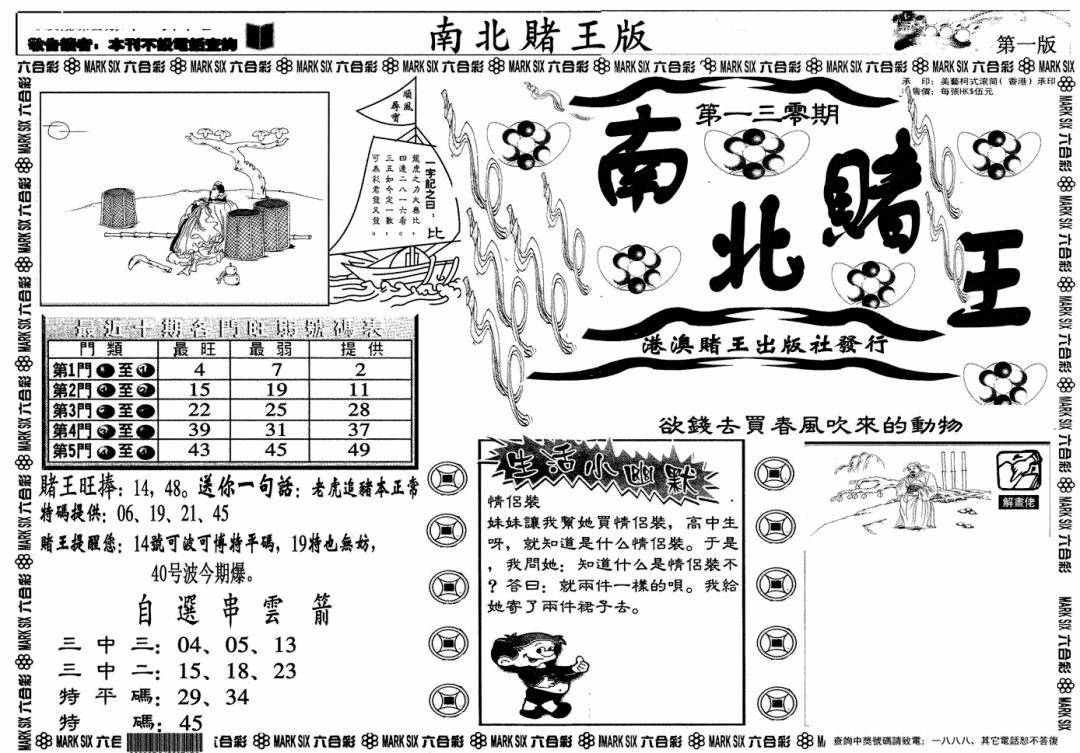 敬告讀者：本刊不設電話查詢
南北賭王版
第一版
六合彩 MARK SIX 六合彩 MARK SIX 六合彩 MARK SIX 六合彩 MARK SIX 六合彩 MARK SIX 六合彩 MARK SIX 六合彩 MARK SIX 六合彩 MARK SIX 六合彩 MARK SIX 六合彩 MARK SIX
承 印：美藝柯式滾筒(香港)承印
售價：每張HK$伍元
順風尋寶
一字記之曰：比
龍虎之力大無比，
四連二八一六看。
三五如今定一數，
可為彩君發又發。
第一三零期
南北賭王
港澳賭王出版社發行
最近十期各門旺弱號碼表
門類 最旺 最弱 提供
第1門 至 4 7 2
第2門 至 15 19 11
第3門 至 22 25 28
第4門 至 39 31 37
第5門 至 43 45 49
賭王旺捧：14，48。送你一句話：老虎追豬本正常
特碼提供：06、19、21、45
賭王提醒您：14號可波可博特平碼，19特也無妨，
40号波今期爆。
自選串雲箭
三中三：04、05、13
三中二：15、18、23
特平碼：29、34
特碼：45
欲錢去買春風吹來的動物
生活小幽默
情侶裝
妹妹讓我幫她買情侶裝，高中生
呀，就知道是什么情侶裝。于是
，我問她：知道什么是情侶裝不
？答曰：就兩件一樣的唄。我給
她寄了兩件裙子去。
解畫佬
MARK SIX 六合彩 MARK SIX 六合彩 MARK SIX 六合彩 MARK SIX 六合彩 MARK SIX 六合彩 MARK SIX 六合彩
查詢中獎號碼請致電：一八八八，其它電話恕不答復